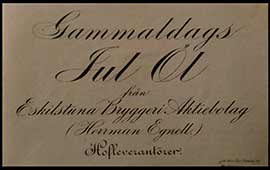 Gammaldags
Jul Öl
från
Eskilstuna Bryggeri Aktiebolag
(Herrman Egnell)
Hofleverantörer.